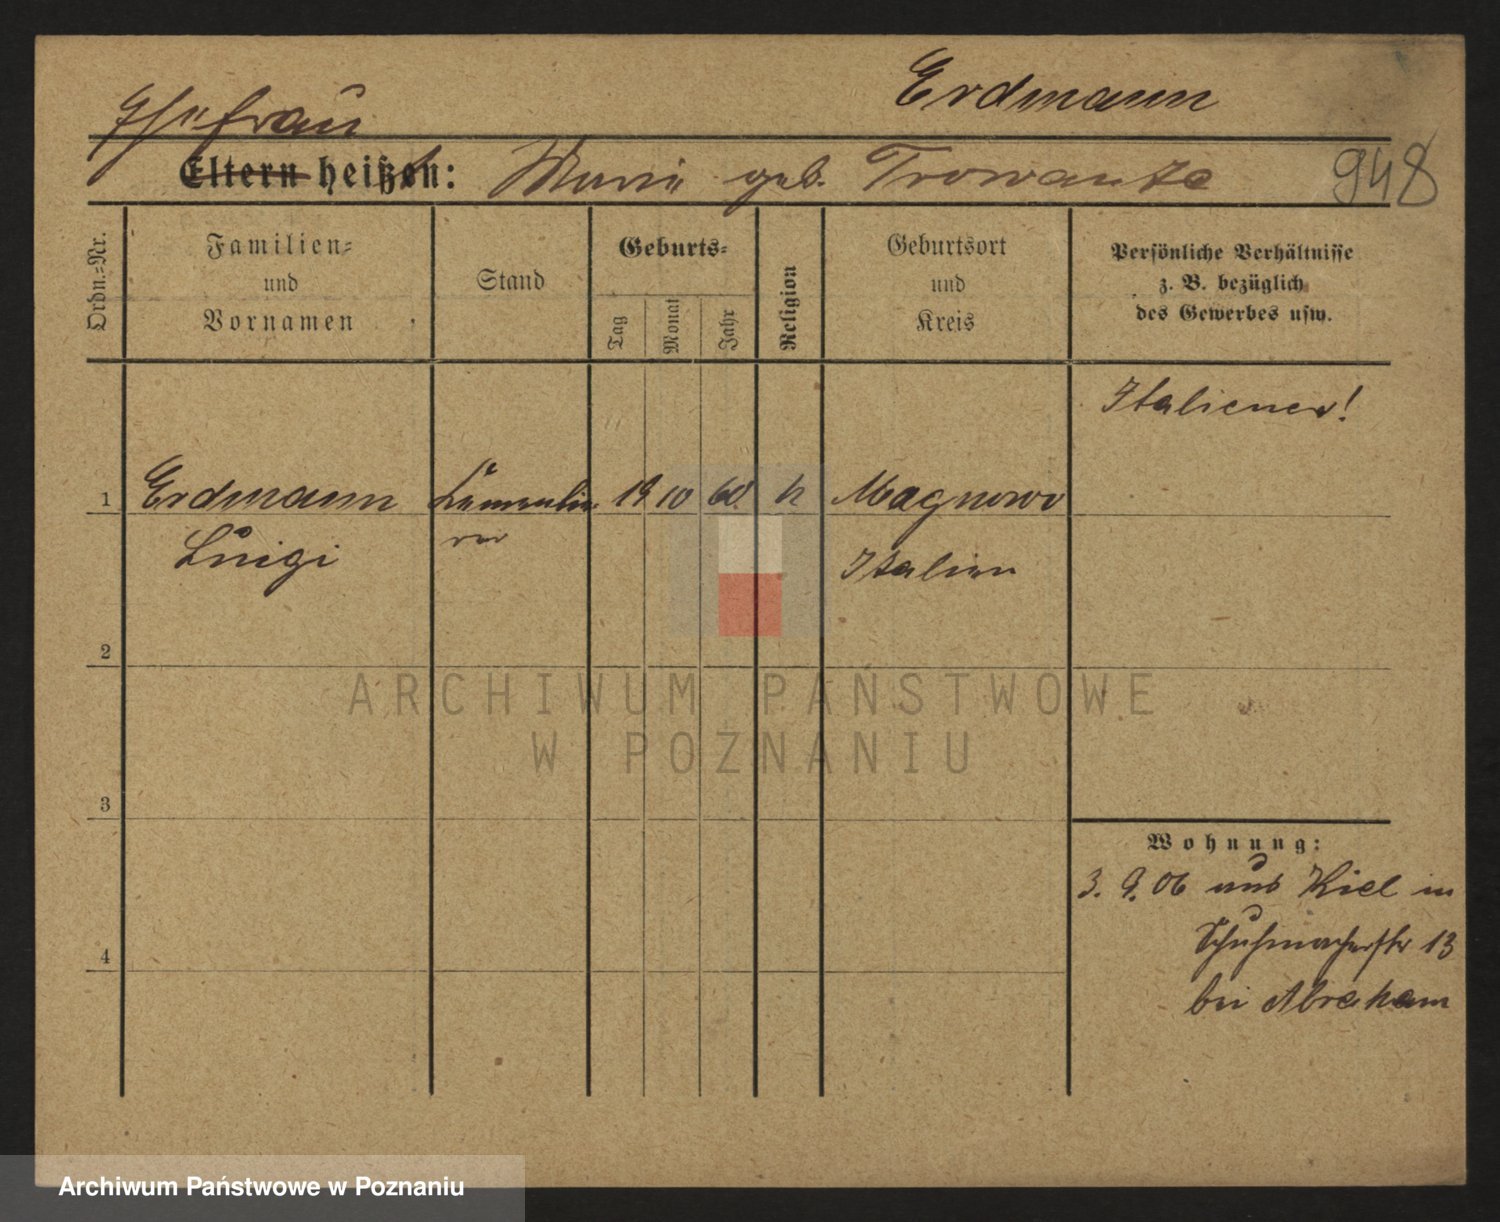 Erdmann
Ehefrau
Eltern heißen: Marie geb. Trowantze
948
Ordn.=Nr.
Familien=
und
Vornamen
Stand
Geburts=
Tag
Monat
Jahr
Religion
Geburtsort
und
Kreis
Persönliche Verhältnisse
z. B. bezüglich
des Gewerbes usw.
Italiener!
1 Erdmann 19 10 60 k Magnowo
Luigi
Italien
2
ARCHIWUM PAŃSTWOWE
W POZNANIU
3
Wohnung:
3. 9. 06 aus Kiel in
Schuhmacherstr 13
4
bei Abraham
Archiwum Państwowe w Poznaniu